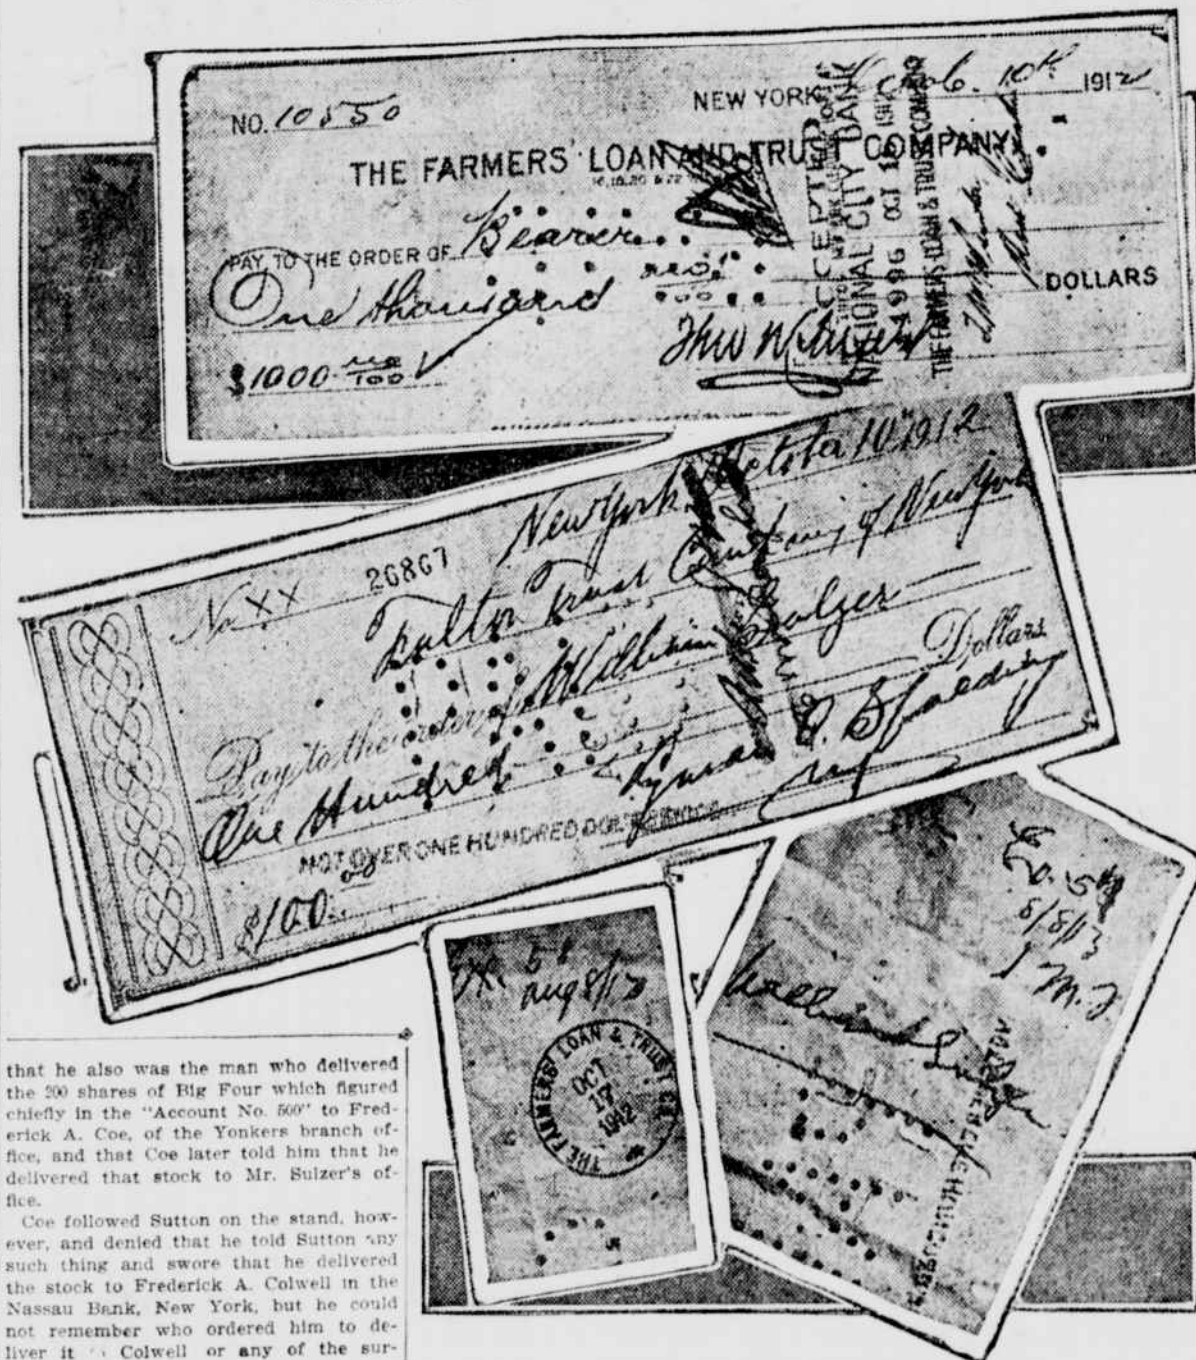 NO. 10550
NEW YORK Oct. 10th 1912
THE FARMERS' LOAN AND TRUST COMPANY.
16, 18, 20 & 22
PAY TO THE ORDER OF Bearer
One thousand no/100 DOLLARS
$1000 no/100
ACCEPTED
NATIONAL CITY BANK
1996 OCT 1912
THE FARMERS LOAN & TRUST COMPANY
New York October 10 1912
No XX 26867
Fulton Trust Company of New York
Pay to the order of William Sulzer
One Hundred Dollars
Lyman A. Spalding
NOT OVER ONE HUNDRED
$100.00
58
Aug 8/13
THE FARMERS' LOAN & TRUST CO.
OCT
1912
8/8/13
William Sulzer
that he also was the man who delivered
the 200 shares of Big Four which figured
chiefly in the "Account No. 500" to Fred-
erick A. Coe, of the Yonkers branch of-
fice, and that Coe later told him that he
delivered that stock to Mr. Sulzer's of-
fice.
Coe followed Sutton on the stand, how-
ever, and denied that he told Sutton any
such thing and swore that he delivered
the stock to Frederick A. Colwell in the
Nassau Bank, New York, but he could
not remember who ordered him to de-
liver it Colwell or any of the sur-